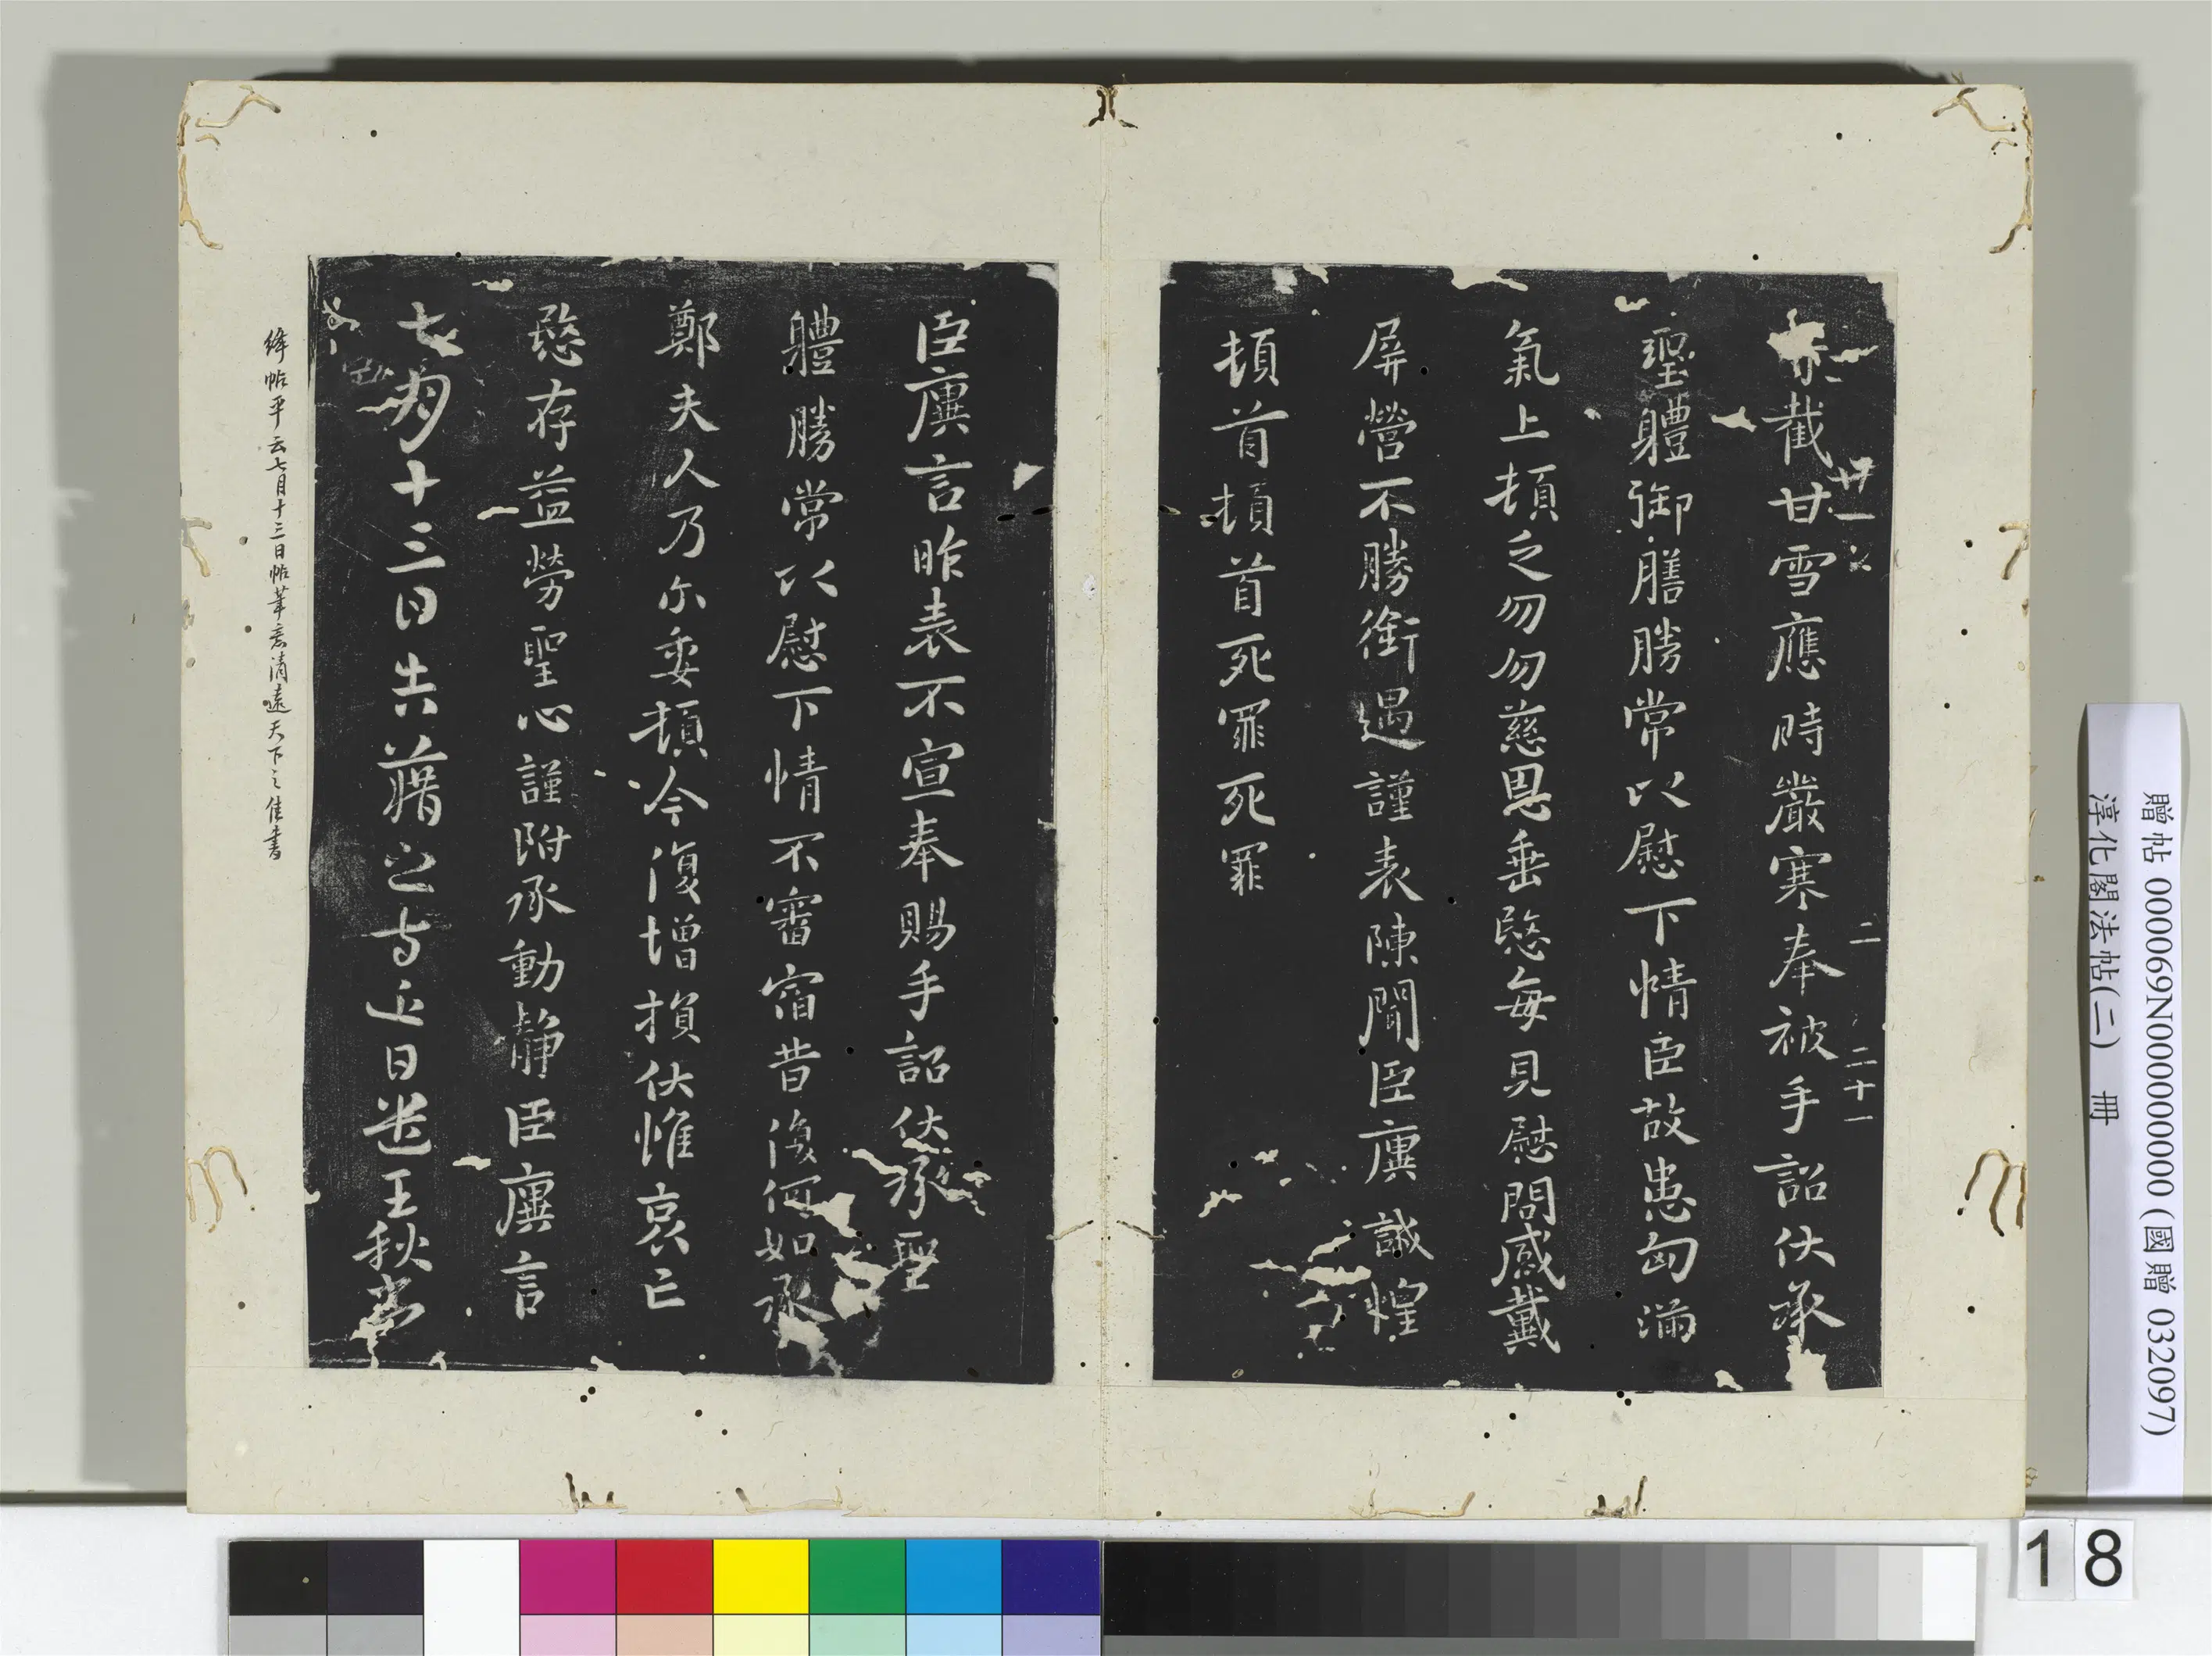 二 二十一
廿一
截甘雪應時嚴寒奉被手詔伏承
聖軆御膳勝常以慰下情臣故患匈滿
氣上頓乏勿勿慈恩垂愍每見慰問感戴
屏營不勝銜遇謹表陳聞臣廙誠惶
頓首頓首死罪死罪
臣廙言昨表不宣奉賜手詔伏承聖
軆勝常以慰下情不審宿昔復何如承
鄭夫人乃尓委頓今復增損伏惟哀亡
愍存益勞聖心謹附承動靜臣廙言
七月十三日告藉之等近日遘王秋當
絳帖平云七月十三日帖筆意清遠天下之佳書
贈帖 000069N000000000 (國贈 032097)
淳化閣法帖(二) 冊
18